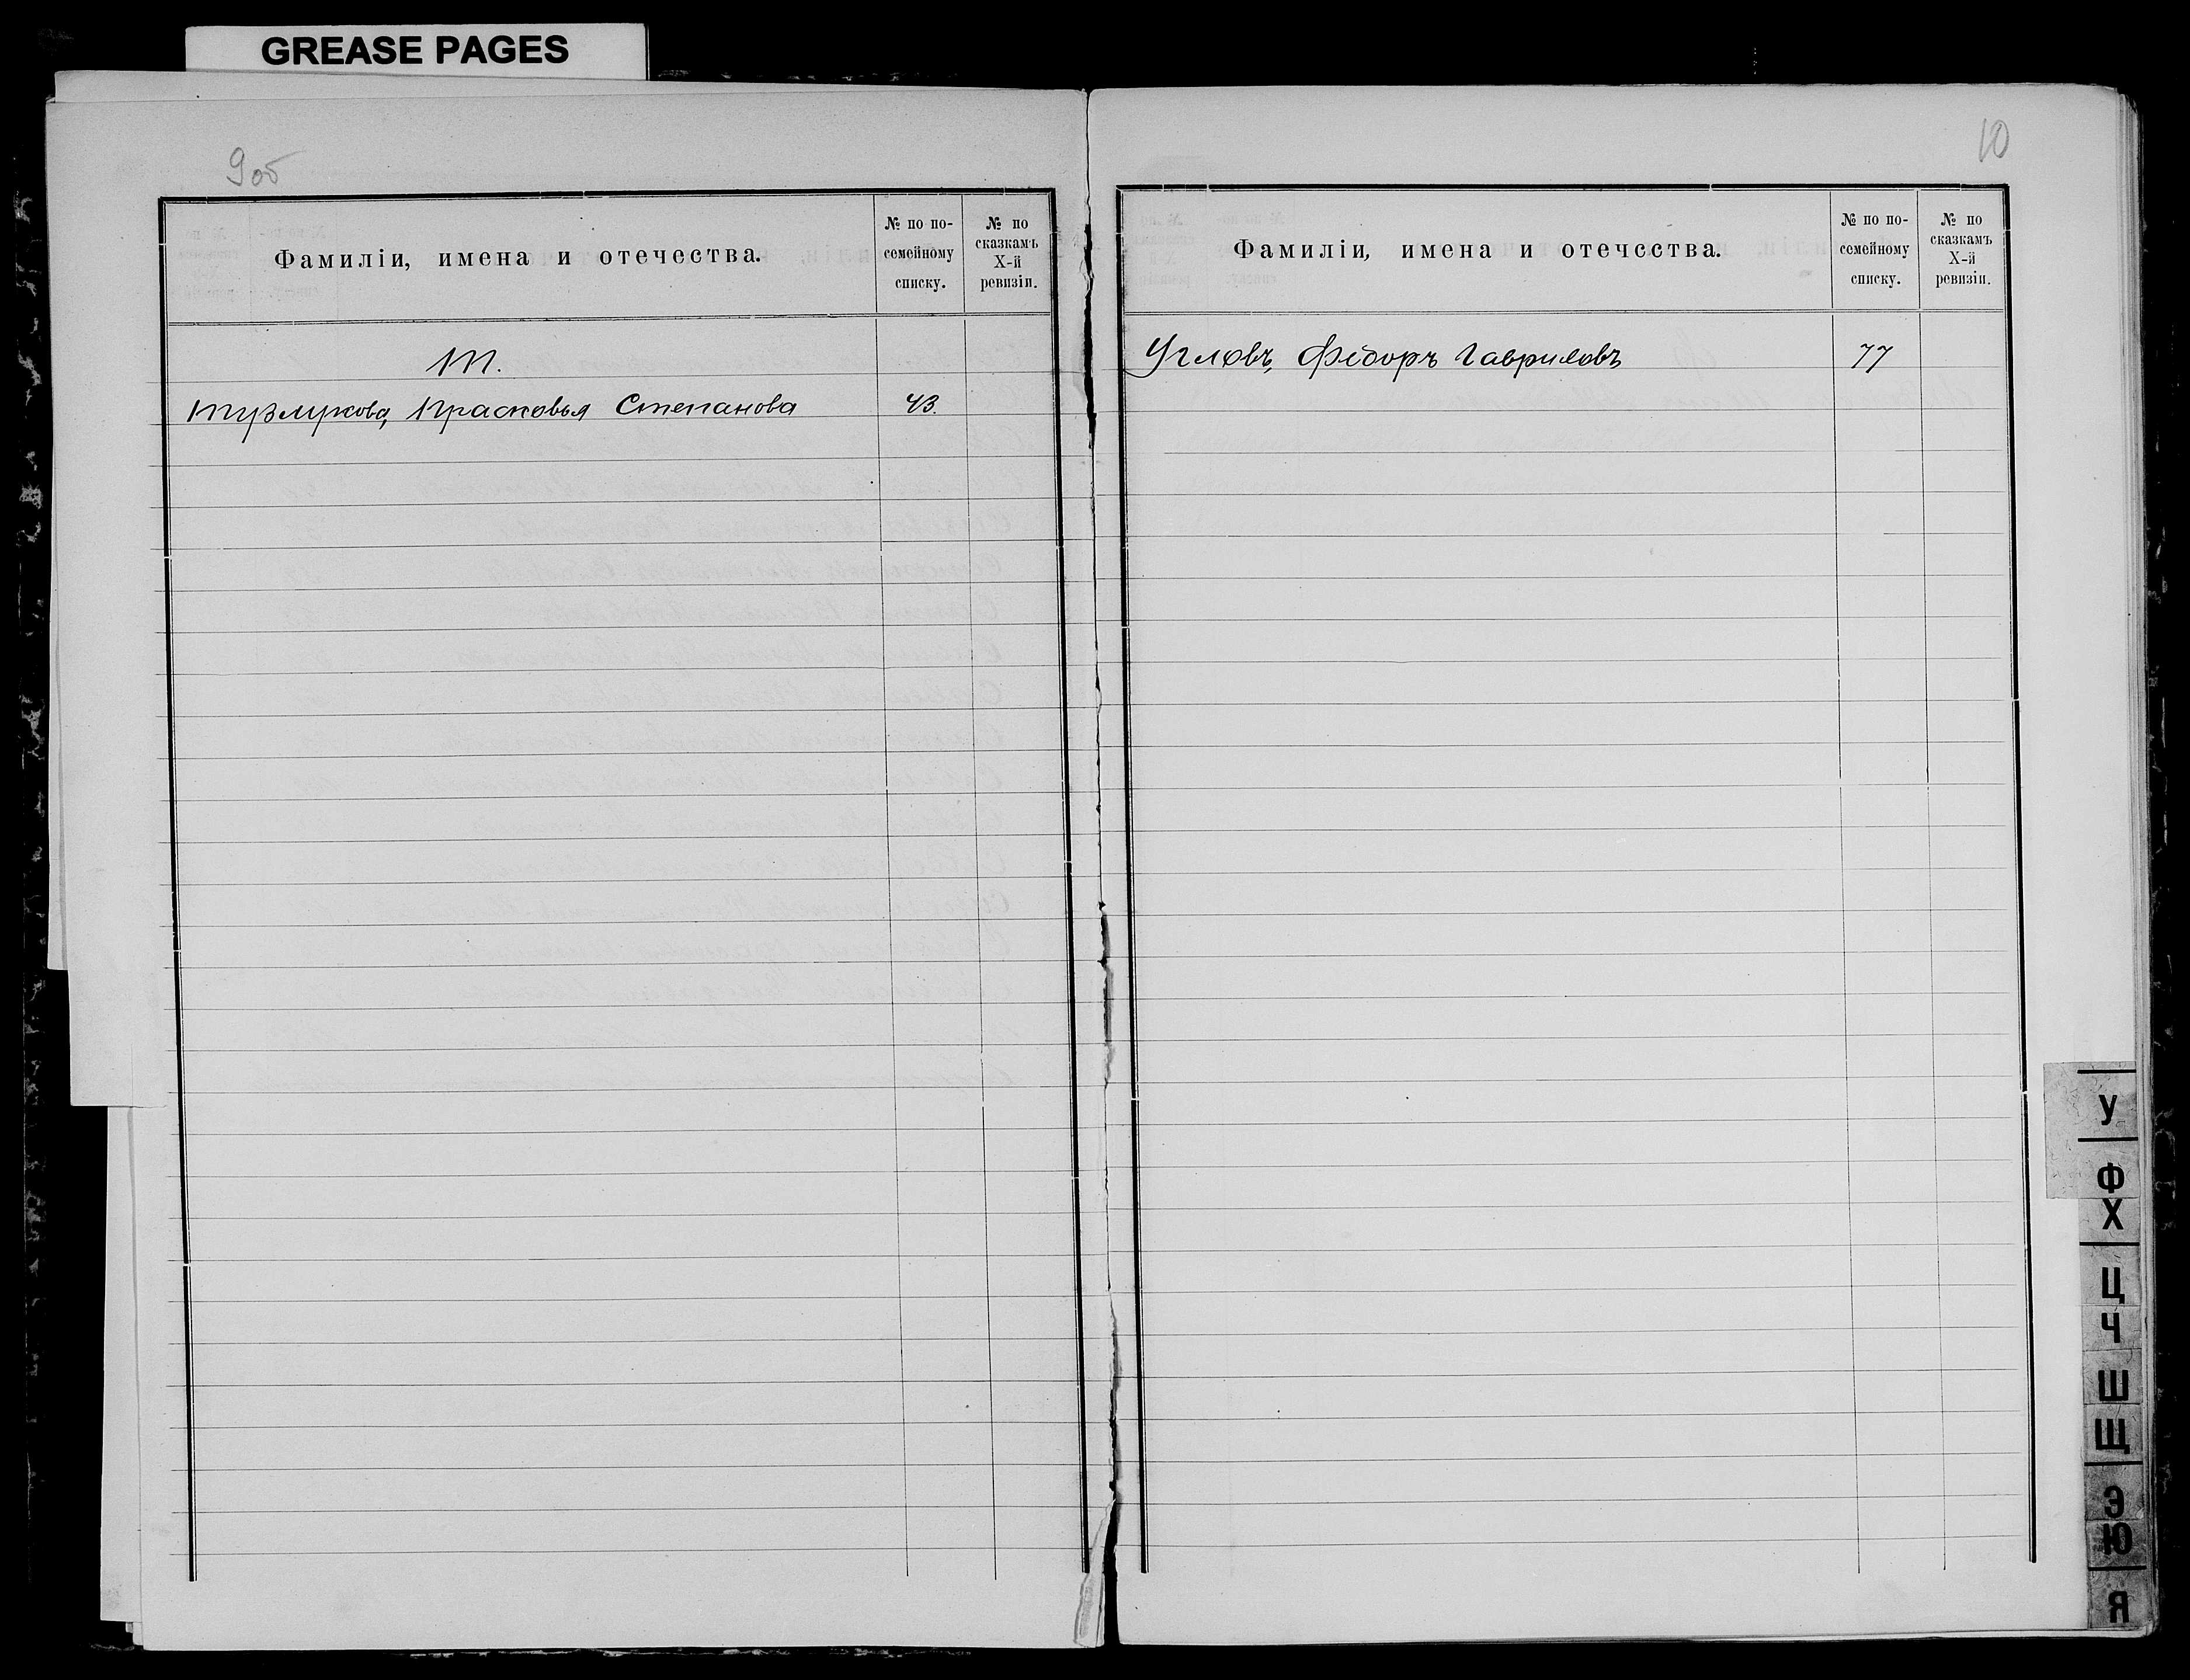 GREASE PAGES
9 об
Фамиліи, имена и отечества.
№ по по-
семейному
списку.
№ по
сказкамъ
X-й
ревизіи.
Т.
Турлукова, Прасковья Степанова 43.
10
Фамиліи, имена и отечества.
№ по по-
семейному
списку.
№ по
сказкамъ
X-й
ревизіи.
Угловъ, Федоръ Гавриловъ 77
У
Ф
Х
Ц
Ч
Ш
Щ
Э
Ю
Я